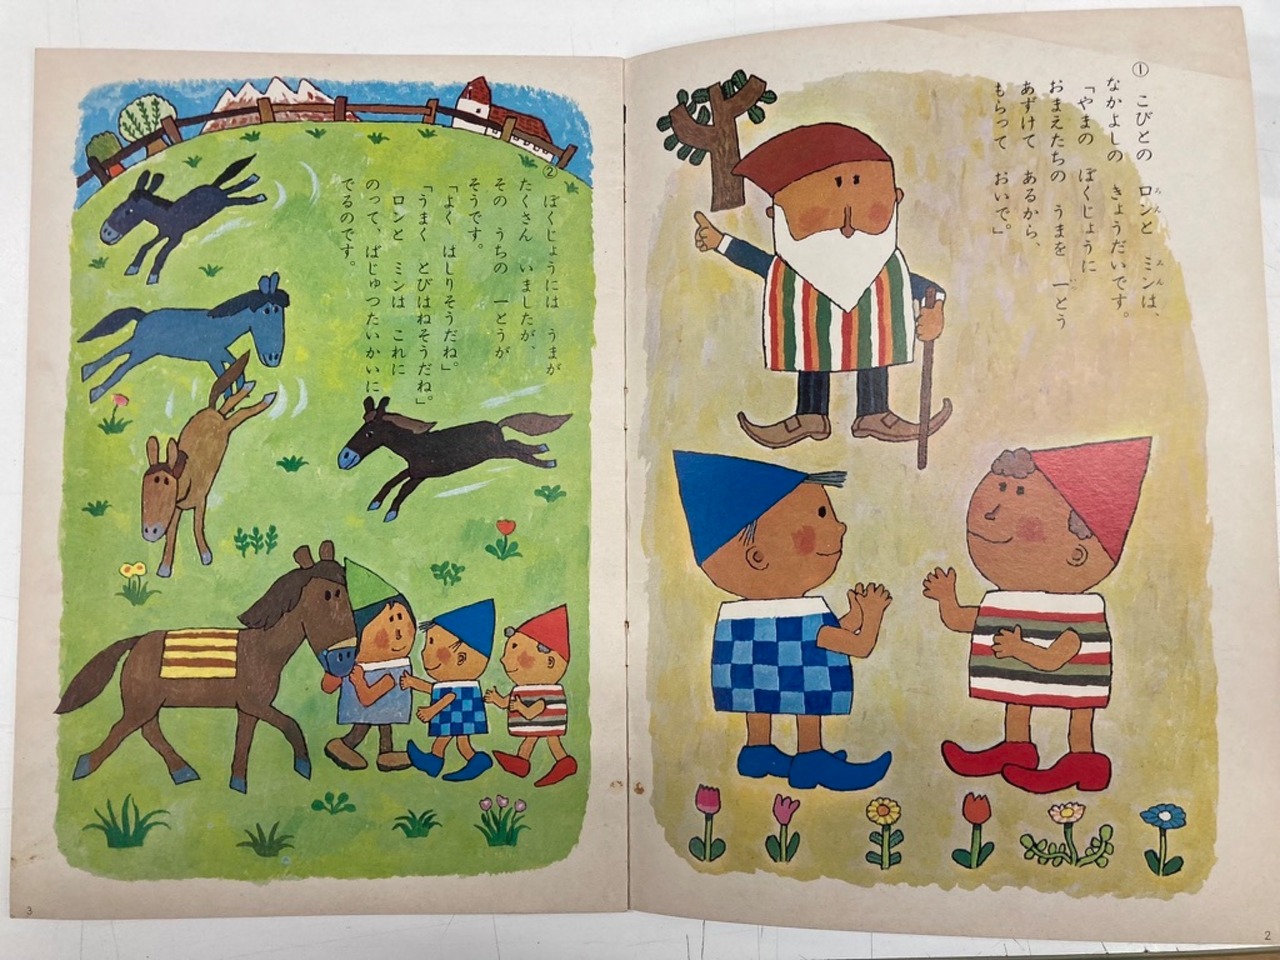 ① こびとの ロンと ミンは、
なかよしの きょうだいです。
「やまの ぼくじょうに
おまえたちの うまを 一とう
あずけて あるから、
もらって おいで」
② ぼくじょうには うまが
たくさん いましたが、
その うちの 一とうが
そうです。
「よく はしりそうだね。」
「うまく とびはねそうだね。」
ロンと ミンは これに
のって、ばじゅつたいかいに
でるのです。
2
3